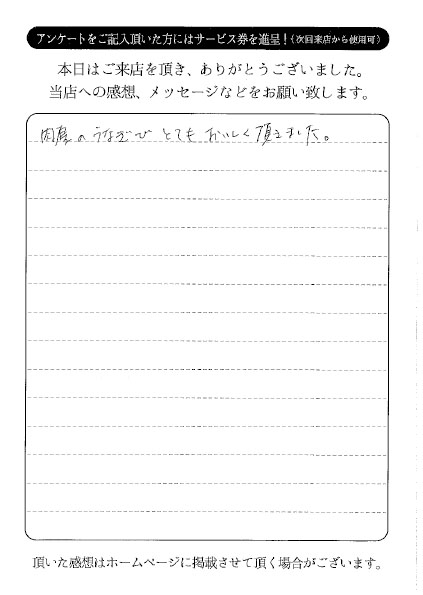 アンケートをご記入頂いた方にはサービス券を進呈!(次回来店から使用可)
本日はご来店を頂き、ありがとうございました。
当店への感想、メッセージなどをお願い致します。
肉厚のうなぎでとてもおいしく頂きました。
頂いた感想はホームページに掲載させて頂く場合がございます。